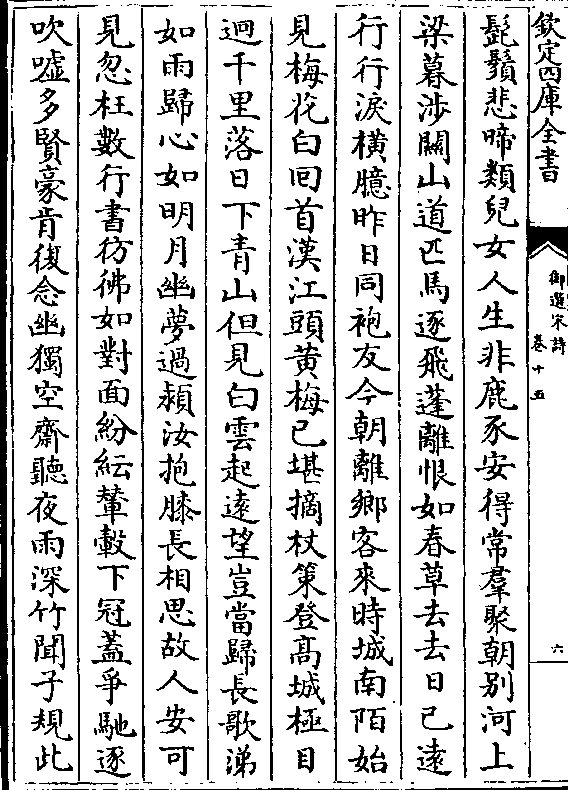 欽定四庫全書
御選宋詩
卷十五
六
髭鬚悲啼類兒女人生非鹿豕安得常羣聚朝别河上
梁暮涉關山道匹馬逐飛蓬離恨如春草去去日已遠
行行淚横臆昨日同袍友今朝離鄉客來時城南陌始
見梅花白回首漢江頭黄梅已堪摘杖策登髙城極目
迥千里落日下青山但見白雲起逺望豈當歸長歌涕
如雨歸心如明月幽夢過潁汝抱膝長相思故人安可
見忽枉數行書彷彿如對面紛紜輦轂下冠蓋爭馳逐
吹噓多賢豪肯復念幽獨空齋聽夜雨深竹聞子規此